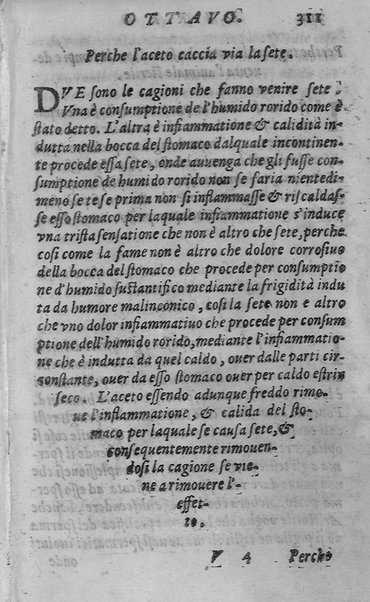 OTTAVO. 311
Perche l'aceto caccia via la sete.
DVE sono le cagioni che fanno venire sete.
Vna è consumptione de l'humido rorido come è
stato detto. L'altra è infiammatione & calidità in-
dutta nella bocca del stomaco dalquale incontinen-
te procede essa sete, onde auuenga che gli fusse con-
sumptione de humido rorido non se saria nientedi-
meno se te se prima non si inflammasse & riscaldas-
se esso stomaco per laquale infiammatione s'induce
vna trista sensatione che non è altro che sete, perche
cosi come la fame non è altro che dolore corrosiuo
della bocca del stomaco che procede per consumptio
ne d'humido sustantifico mediante la frigidità indu
ta da humore malinconico, cosi la sete non e altro
che vno dolor infiammatiuo che procede per consum
ptione dell'humido rorido, mediante l'infiammatio-
ne che è indutta da quel caldo, ouer dalle parti cir-
constante, ouer da esso stomaco ouer per caldo estrin
seco. L'aceto essendo adunque freddo rimo-
ue l'inflammatione, & calida del sto-
maco per laquale se causa sete, &
consequentemente rimouen-
dosi la cagione se vie-
ne a rimouere l'-
effet-
to.
V 4 Perche